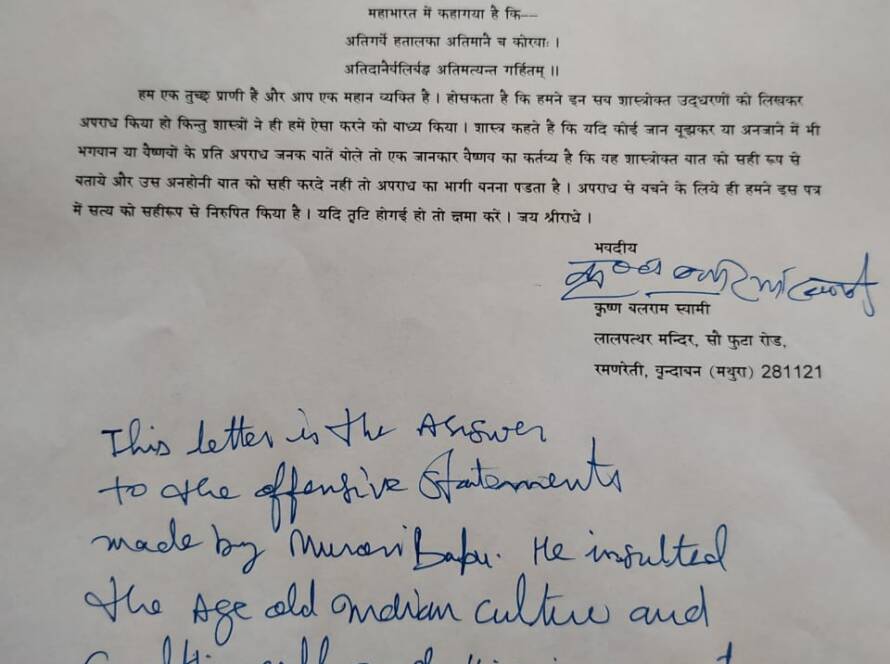 महाभारत में कहागया है कि––
अतिगर्वे हतालका अतिमानै च कोरवाः ।
अतिदानैर्वलिर्वद्ध अतिमत्यन्त गर्हितम् ।।
हम एक तुच्छ प्राणी है और आप एक महान व्यक्ति है । होसकता है कि हमने इन सव शास्त्रोक्त उद्धरणों को लिखकर
अपराध किया हो किन्तु शास्त्रों ने ही हमें ऐसा करने को वाध्य किया । शास्त्र कहते है कि यदि कोई जान वूझकर या अनजाने में भी
भगवान या वैष्णवों के प्रति अपराध जनक वातें वोले तो एक जानकार वैष्णव का कर्तव्य है कि वह शास्त्रोक्त वात को सही रूप से
वताये और उस अनहोनी वात को सही करदे नहीं तो अपराध का भागी वनना पडता है । अपराध से वचने के लिये ही हमने इस पत्र
में सत्य को सहीरूप से निरुपित किया है । यदि तृटि होगई हो तो क्षमा करें । जय श्रीराधे ।
भवदीय
कृष्ण वलराम स्वामी
लालपत्थर मन्दिर, सौ फुटा रोड,
रमणरेती, वृन्दावन (मथुरा) 281121
This letter is the Answer
to the offensive Statements
made by Murari Bapu. He insulted
the Age old Indian culture and